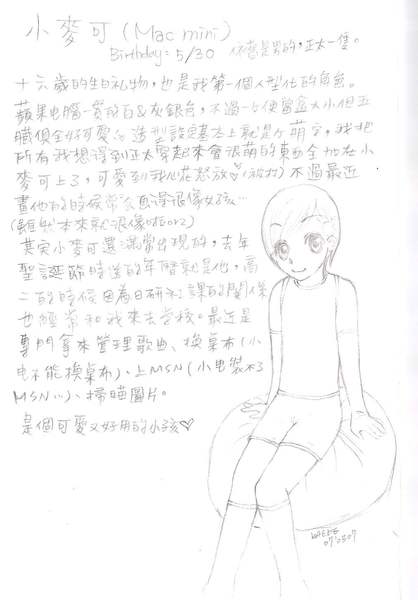 小麥可 (Mac mini)
Birthday: 5/30 你應是男的，正太一隻。
十六歲的生日礼物，也是我第一個人型化的角色。
蘋果电腦一貫的白&灰銀色，不過一个便當盒大小但五
臟俱全好可愛。造型設定基本上就是个萌字，我把
所有我想得到正太穿起來會很萌的東西全堆在小
麥可上了，可愛到我心花怒放♡(被打) 不過最近
畫他的時候常々覺得很像女孩…
(雖然本來就很像啦orz)
其实小麥可還滿常出現的，去年
聖誕節時送的年曆就是他，高
二的時候因為日研和課的関係
也經常和我來去學校。最近是
專門拿來管理歌曲、換桌布(小
电不能換桌布)、上MSN(小电裝不了
MSN…)、掃晒圖片。
是個可愛又好用的小孩♡
07'0507